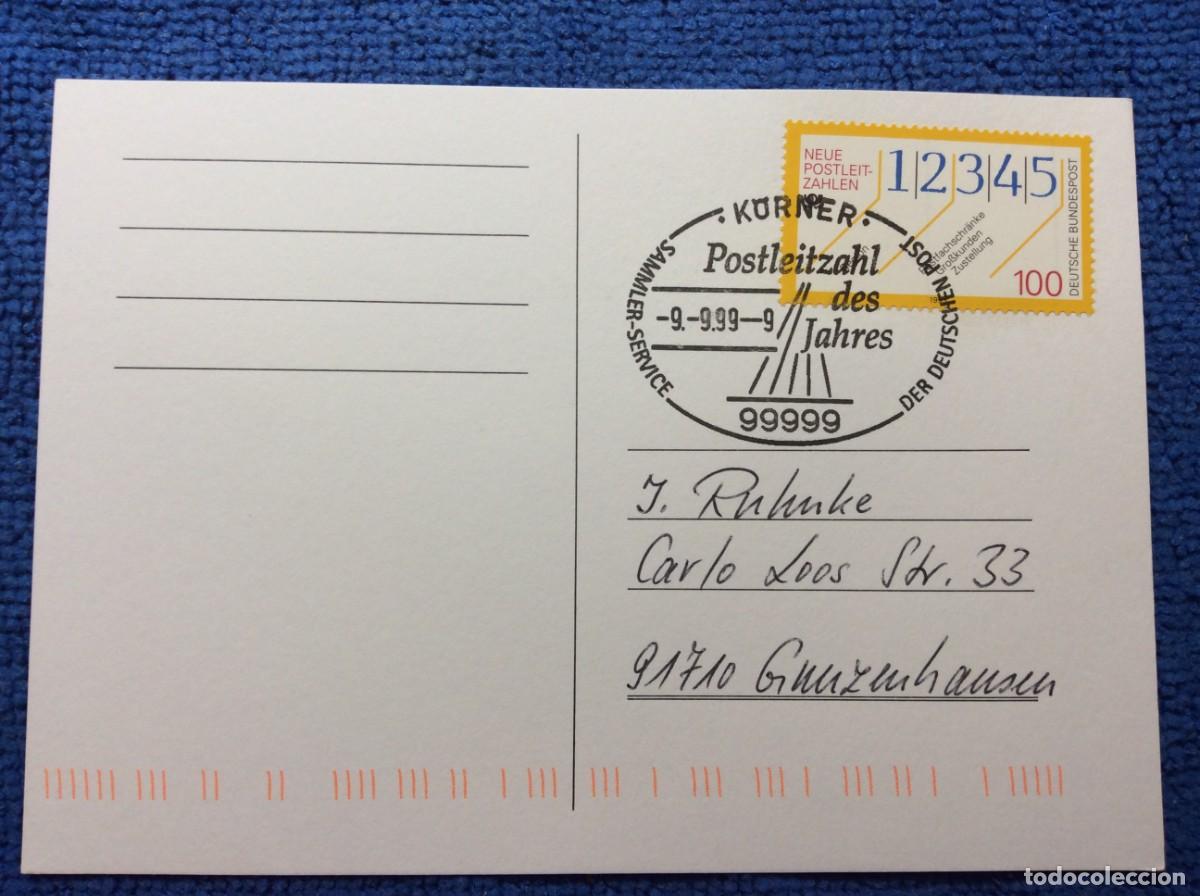 NEUE
POSTLEIT-
ZAHLEN
1|2|3|4|5
Großkunden
Zustellung
100
DEUTSCHE BUNDESPOST
· KÖRNER ·
SAMMLER-SERVICE
DER DEUTSCHEN POST
Postleitzahl
des
Jahres
-9.-9.99--9
99999
J. Ruhnke
Carlo Loos Str. 33
91710 Gunzenhausen
todocoleccion